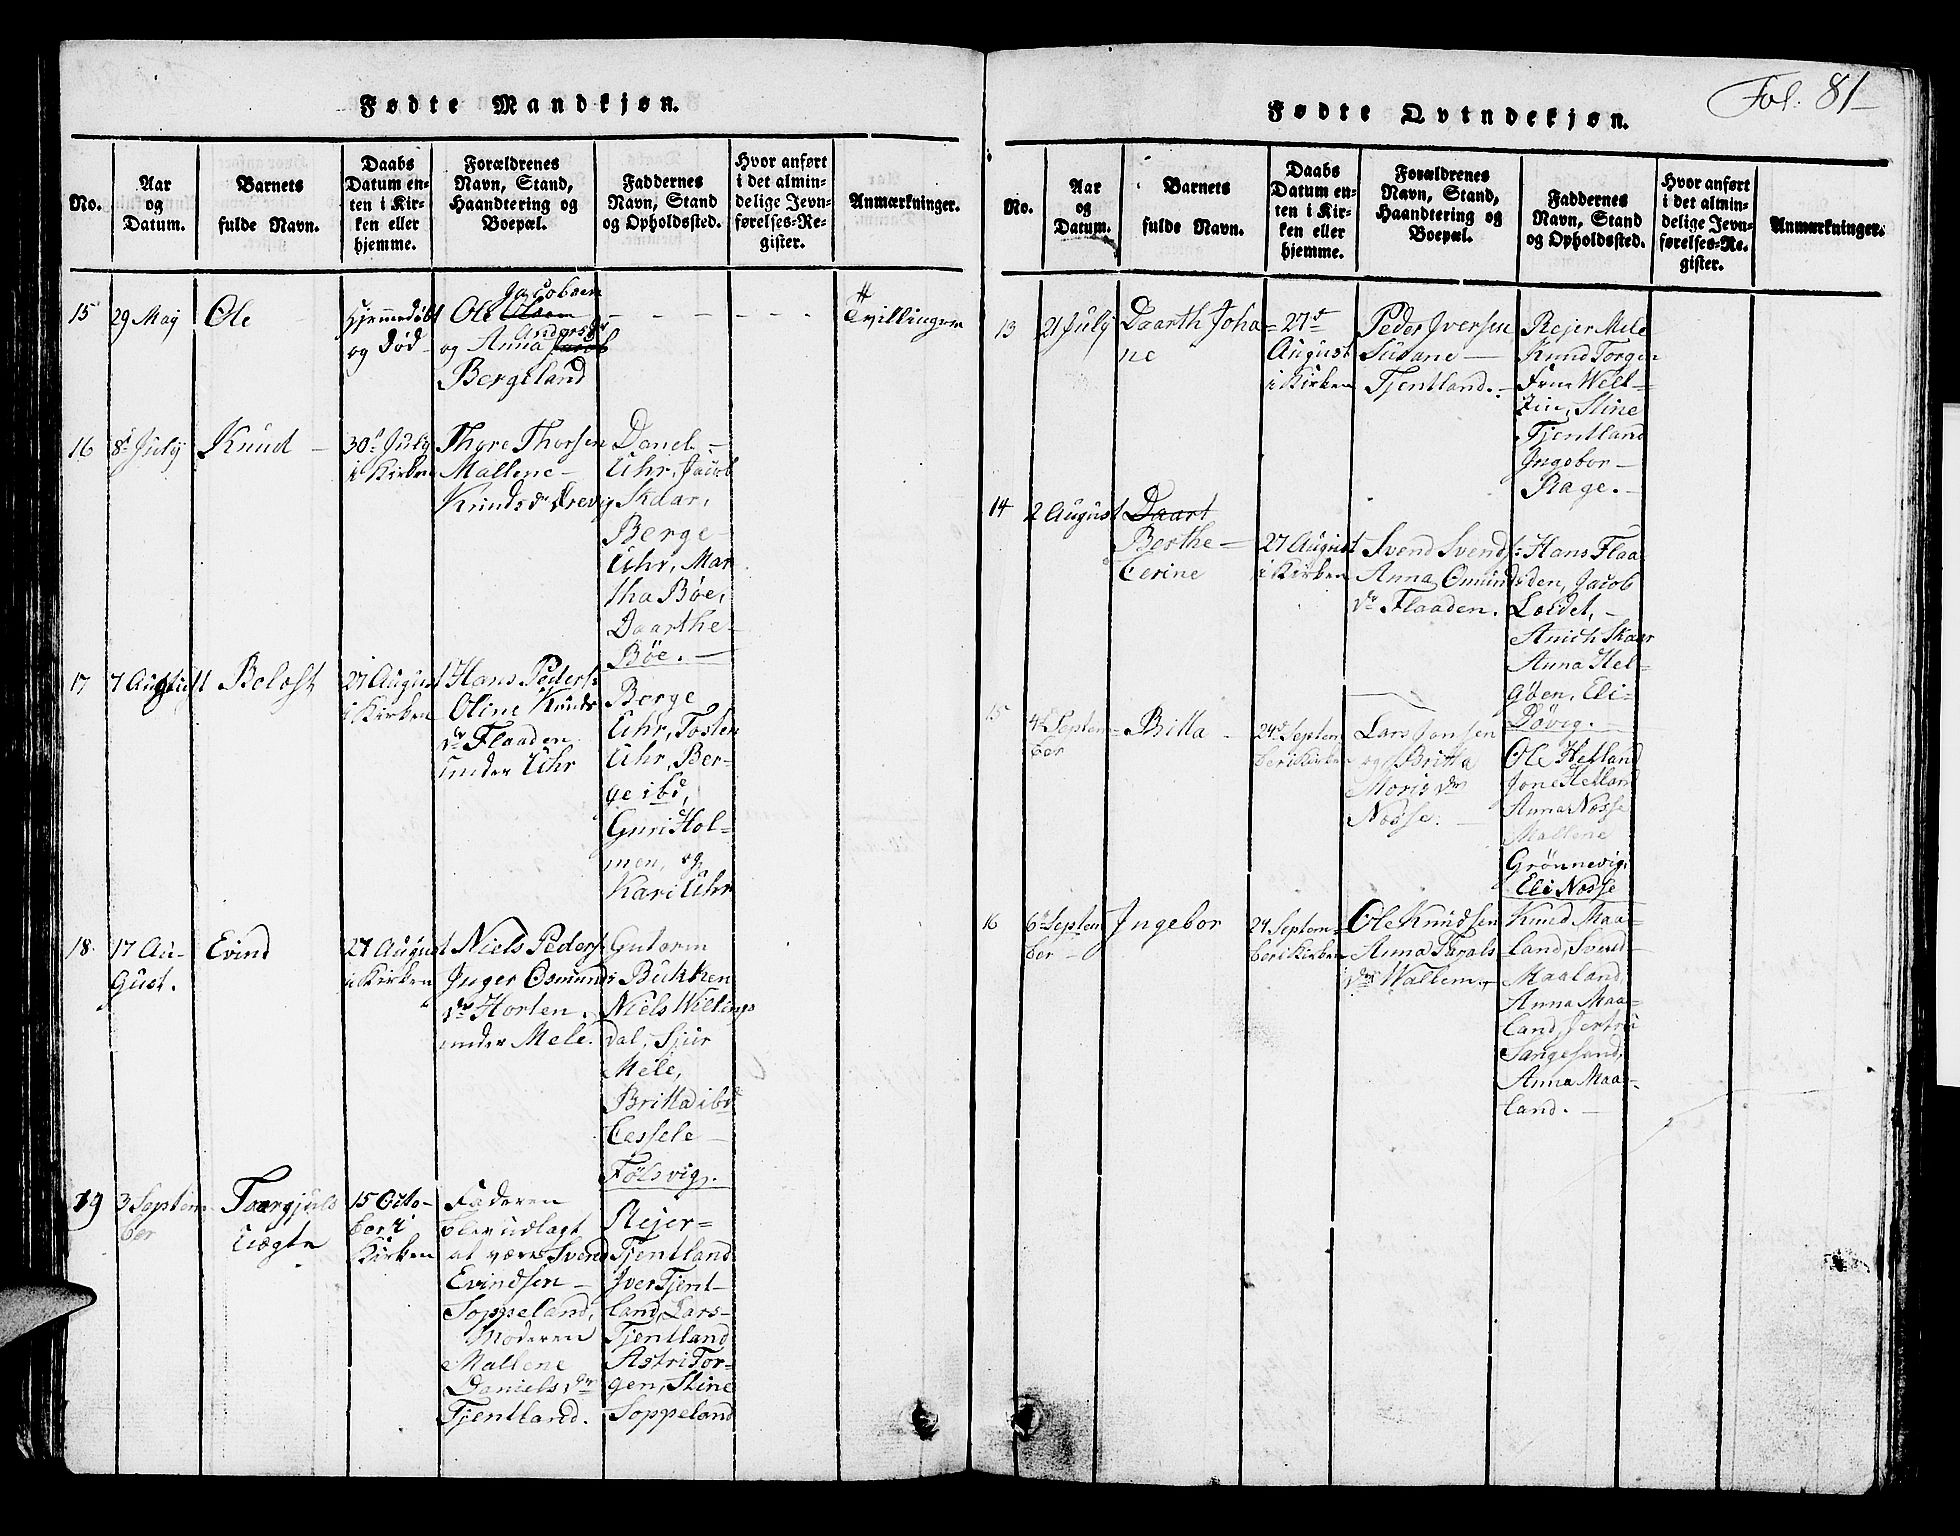 Fødte Mandkjøn.
No.
Aar
og
Datum.
Barnets
fulde Navn.
Daabs
Datum en-
ten i Kir-
ken eller
hjemme.
Forældrenes
Navn, Stand,
Haandtering og
Boepæl.
Faddernes
Navn, Stand
og Opholdssted.
Hvor anført
i det almin-
delige Jevn-
førelses-Re-
gister.
Anmærkninger.
15
29 Maj
Ole
Hjemmedöbt
og död
Jacobsen
Ole Olsen
Andersdr
og Anna Jacob
Bergeland
Tvillinger
16
8d July
Knud
30d July
i Kirken
Thore Thorsen
Mallene
Knudsdr Urevig
Danel
Uhr, Jacob
Skaar,
Berge
Uhr, Mar
tha Böe,
Daarthe
Böe.
17
7 August
Belest
27 August
i Kirken
Hans Peders:
Oline Knuds
dr Flaaden
under Uhr
Berge
Uhr, Tosten
Uhr, Ber-
ge ibd,
Guri Hol-
men, og
Kari Uhr
18.
17 Au-
gust.
Evind
27 August
i Kirken
Niels Peders:
Inger Osmunds
dr Horten
under Mele.
Gutorm
Bukken
Niels Wiltings
dal, Sjur
Mele,
Britta ibd
Cessele
Fölsvig.
19
3 Septem
ber
Torgjuls
Uægte
15 Octo-
ber i
Kirken
Faderen
blev udlagt
at være Svend
Evindsen
Soppeland,
Moderen
Mallene
Danielsdr
Tjentland.
Rejer
Tjentland
Iver Tjent-
land, Lars
Tjentland
Astri Tor-
gen, Stine
Soppeland
Fol: 81
Fødte Qvindekjøn.
No.
Aar
og
Datum.
Barnets
fulde Navn.
Daabs
Datum en-
ten i Kir-
ken eller
hjemme.
Forældrenes
Navn, Stand,
Haandtering og
Boepæl.
Faddernes
Navn, Stand
og Opholdssted.
Hvor anført
i det almin-
delige Jevn-
førelses-Re-
gister.
Anmærkninger.
13
21 July
Daarth Joha
ne
27d
August
i Kirken
Peder Iversen
Susane
Tjentland.
Rejer Mele
Knud Torgen
Fru Welt-
zin, Stine
Tjentland
Ingebor
Rage.
14
2 August
Daart
Berthe
Cerine
27 August
i Kirken
Svend Svends:
Anna Omunds
dr Flaaden.
Hans Flaa
den, Jacob
Loedet,
Anich Skaar
Anna Hel-
göen, Eli
Bövig.
15
4d Septem
ber
Britta
24d Septem
ber i Kirken
Lars Jonsen
og Britta
Moris dr
Nosse.
Ole Hetland
Jone Hetland
Anna Nosse
Mallene
Grönnevig,
Eli Nosse
16
6d Septem
ber
Ingebor
24 Septem-
ber i Kirken
Ole Knudsen
Anna Tarals
dr Wallem.
Knud Maa-
land, Svend
Maaland,
Anna Maa-
land, Jertru
Sangesand,
Anna Maa-
land.